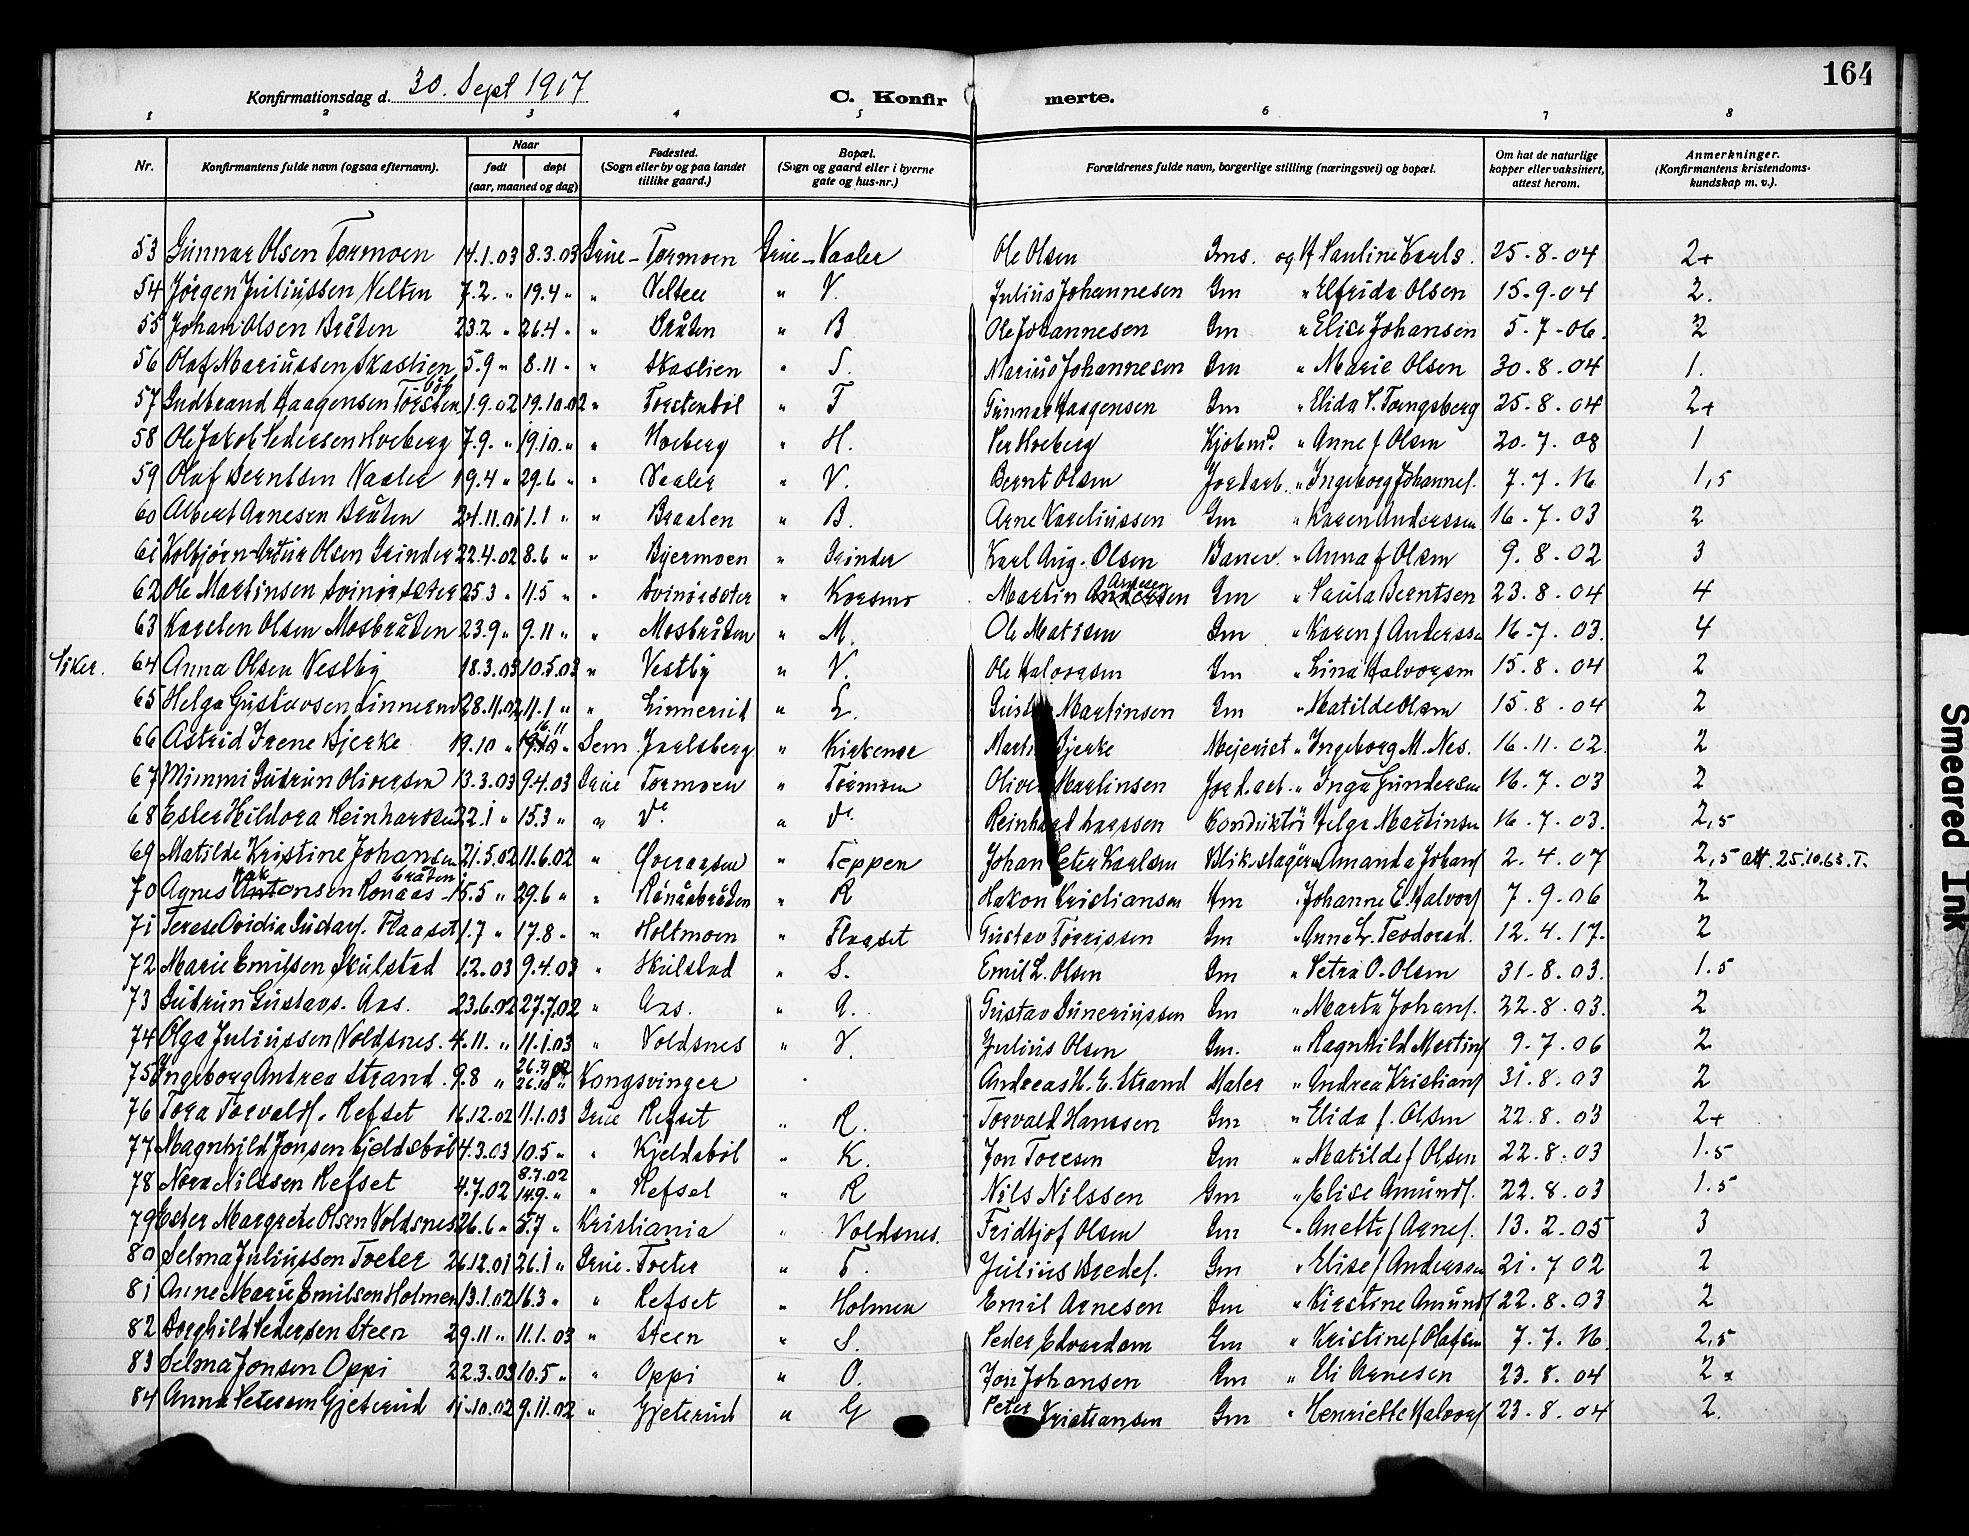 164
Konfirmationsdag d. 30. Sept 1917
C. Konfirmerte.
1 2 3 4 5 6 7 8
Nr. Konfirmantens fulde navn (ogsaa efternavn). Naar født døpt (aar, maaned og dag) Fødested. (Sogn eller by og paa landet tillike gaard.) Bopæl. (Sogn og gaard eller i byerne gate og hus-nr.) Forældrenes fulde navn, borgerlige stilling (næringsvei) og bopæl. Om hat de naturlige kopper eller vaksinert, attest herom. Anmerkninger. (Konfirmantens kristendomskundskap m. v.).
53 Gunnar Olsen Tormoen 14.1.03 8.3.03 Grue - Tormoen Grue - Vaaler Ole Olsen Gms. og H Pauline Karls. 25-8-04 2+
54 Jørgen Juliussen Velten 7.2. " 19.4 " " Velten " V. Julius Johannesen Gm " Elfrida Olsen 15-9-04 2.
55 Johan Olsen Bråten 23.2 " 26.4 " " Bråten " B Ole Johannesen Gm " Elise Johansen 5-7-06. 2
56 Olaf Mariussen Skaslien 5.9 " 8.11 " " Skaslien " S. Marius Johannesen Gm " Marie Olsen 30-8-04 1.
57 Gudbrand Haagensen Torstenbøl 1.9.02 19.10.02 " Torstenbøl " T Gunnar Haagensen Gm " Elida P. Tangsberg 25-8-04 2+
58 Ole Jakob Pedersen Hveberg 7.9. " 19.10. " " Hveberg " H. Per Hveberg Kjøbmd. " Anne f Olsen 20.7.08 1
59 Olaf Berntsen Vaaler 19.4 " 29.6 " " Vaaler " V. Bernt Olsen Jordarb. " Ingeborg Johannef. 7.7.16 1,5
60 Albert Arnesen Bråten 24.11.01 1.1 " " Braaten " B. Arne Kareliussen Gm " Karen Anderssen 16-7.03 2
61 Kolbjørn Artur Olsen Grinder 22.4.02 8.6 " " Bjermoen " Grinder Karl Aug. Olsen Banev. " Anna f Olsen 9.8.02 3
62 Ole Martinsen Svinørsæter 25.3 " 11.5 " " Svinørsæter " Korsmo Martin Arnesen Gm " Paula Berntsen 23.8.04 4
63 Karsten Olsen Mosbråten 23.9 " 9.11 " " Mosbråten " M. Ole Matisen Gm " Karen f Anderssen 16-7.03. 4
64 Anna Olsen Vestby 18.3.03 10.5.03 " Vestby " V. Ole Halvorsen Gm " Lina Halvorsen 15.8.04 2
65 Helga Gustavsen Linnerud 28.11.02 11.1 " " Linnerud " L. Martinsen Gm " Matilde Olsen 15.8.04 2
66 Astrid Irene Bjerke 19.10 " Sem Jarlsberg " Kirkenær Bjerke Mejerist " Ingeborg M. Nes. 16.11.02. 2
67 Mimmi Gudrun Oliversen 13.3.03 9.4.03 Grue Tormoen " Tormoen Oliver Martinsen Jordarb. " Inga Gundersen 16.7.03 2
68 Ester Hildora Reinhardsen 22.1 " 15.3 " " Do " Do Reinhard Larssen Konduktør Helga Martinsen 16.7.03. 2,5
69 Matilde Kristine Johansen 21.5.02 11.6.02 " " Teppen Johan Peter Karlsen Blikslager " Amanda Johanf 2.4.07 2,5 att. 25.10.63. T.
70 Agnes Hak Ronaasbråten 15.5 " 29.6 " " Rönåsbråten " R Hakon Kristiansen Hm " Johanne E. Halvorf 7.9.06 2
71 Terese Ovidia Gustavf. Flaaset 1.7 " 17.8 " " Holtmoen " Flaaset Gustav Torrissen Gm " Anna L. Teodorsd. 12.4.17. 2
72 Marie Emilsen Skulstad 1.2.03 9.4.03 " Skulstad " S. Emil L. Olsen Gm " Petra O. Olsen 31-8.03. 1.5
73 Gudrun Gustavs. Aas. 23.6.02 27.7.02 " Aas. " A. Gustav Guneriussen Gm " Marta Johanf. 22.8.03. 2
74 Olga Juliussen Voldsnes. 4.11. " 11.1.03 " Voldsnes " V. Julius Olsen Gm. " Ragnhild Martinf 9.7.06 2
75 Ingeborg Andrea Strand. 9.8 " 26.9.02 26.10 " Kongsvinger Andreas H. E. Strand Maler " Andrea Kristianf 31.8.03 2
76 Tora Torvaldf. Refset 16.12.02 11.1.03 Grue Refset " R. Torvald Hanssen Gm " Elida f. Olsen 22.8.03 2+
77 Magnhild Jonsen Kjeldsbøl 4.3.03 10.5 " " Kjeldsbøl " K. Jon Toresen Gm " Matilde f Olsen 22.8.03 1.5
78 Nora Nilssen Refset 4.7.02 8.7.02 14.9. " " Refset " R Nils Nilssen Gm " Elise Amundf. 22.8.03 1.5
79 Ester Margrete Olsen Voldsnes 26.6 " 5.7 " Kristiania " Voldsnes. Fridtjof Olsen Gm " Anette f Arnef. 13.2.05 3
80 Selma Juliussen Tveter 26.12.01 26.1 " Grue. Tveter " T. Julius Bredef. Gm " Elise f Anderssen 21.7 02 2
81 Anne Marie Emilsen Holmen 13.1.02 16.3 " " Refset " Holmen Emil Arnesen Gm " Kirstine Amundf 22.8.03 2
82 Borghild Pedersen Steen 29.11 " 11.1.03 " Steen " S. Peder Edvardsen Gm " Kristine f Olafsen 7.7.16. 2,5
83 Selma Jonsen Oppi 22.3.03 10.5 " " Oppi " O. Jon Johansen Gm " Eli Arnesen 23.8.04 2
84 Anna Petersen Gjeterud 11.10.02 9.11.02 " Gjeterud " G Peter Kristiansen Gm " Henriette Halvorf 23-8.04 2.
Smeared Ink